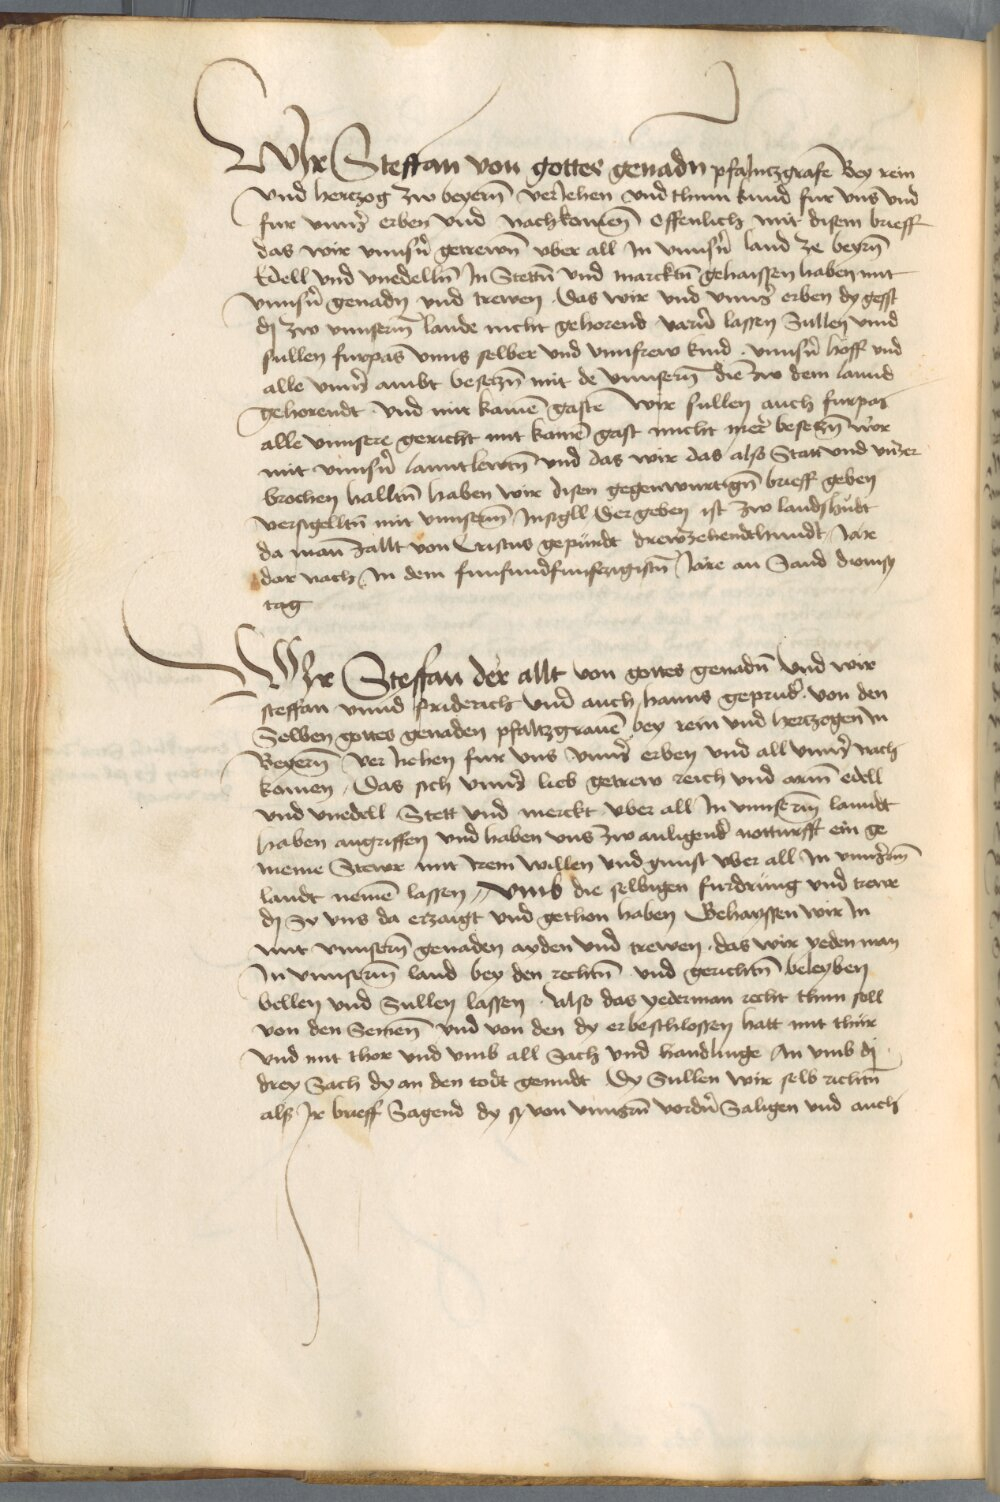 Wyr Steffan von gottes genadn pfalntzgrafe Bey rein
vnd hertzog zw beyern̄ veriehen vnd thunn kund fur vns vnd
fur vnns̄ erben vnd nachkomen̄ offenlich mit disem brieff
das wir vnnsn̄ getrewn̄ vber all In vnnsn̄ land ze beyrn̄
Edell vnd vnedelln̄ In Stettn̄ vnd marcktn̄ gehaissen haben mit
vnnsn̄ genadn vnd trewen . Das wir vnd vnns̄ erben dy gesst
dj zw vnnserm̄ lande nicht gehorend varn̄ lassen Sullen vnnd
sullen furpas vnns selber vnd vnnsrew kind . vnnsn̄ hoff vnd
alle vnnsr̄ ambt besetzn̄ mit de vnnsern̄ die zw dem lannd
gehorendt . vnd mit kainē gaste Wir sullen auch furpas
alle vnnsere gericht mit kainē gast nicht mer̄ besetzn̄ wer
mit vnnsn̄ lanntlewtn̄ vnd das wir das also Statt vnd vnzer
brochen halltn̄ haben wir disen gegenwurtign̄ brieff geben
versigelltn̄ mit vnnserm̄ Insigll Der geben ist zw landshudt
da man̄ zallt von Cristus gepürdt drewzehendthundt Jar
dar nach In dem funfundfunfczigistn̄ Jare an Sand dionisy
tag
Wyr Steffan der allt von gottes genadn̄ Vnd wir
steffan vnnd fridrich vnd auch hanns geprud̄ . von den
Selben gottes genaden pfaltzgrauē bey rein vnd hertzogen In
Beyern̄ Ver iehen fur vns vnnsr̄ erben vnd all vnnsr̄ nach
komen . Das sich vnnsr̄ lieb getrew reich vnd arm̄ edell
vnd vnedell Stett vnd merckt vber all In vnnserm̄ lanndt
haben angriffen vnd haben vns zw anligend̄ notturfft ein ge
meine Stewr mit irem willen vnd gunst vber all In vnnserm̄
landt nemē lassen // vmb die selbigen furdrung vnd trew
dj Sy vns da erzaigt vnd gethon haben Gehayssen wir In
mit vnnsern̄ genaden ayden vnd trewen . das wir yeden man
In vnnserm̄ land bey den rechtn̄ vnd gerichtn̄ beleyben
bellen vnd Sullen lassen . Also das yederman recht thun soll
von den Seinen̄ vnd von den dy er beschlossen hatt mit thür
vnd mit thor vnd vmb all Sach vnd handlunge An vmb dj
drey Sach dy an den todt genndt Dy Sullen wir selb richtn̄
als Jr brieff Sagend dy sy von vnnsern̄ vordn̄ Saligen vnd auch